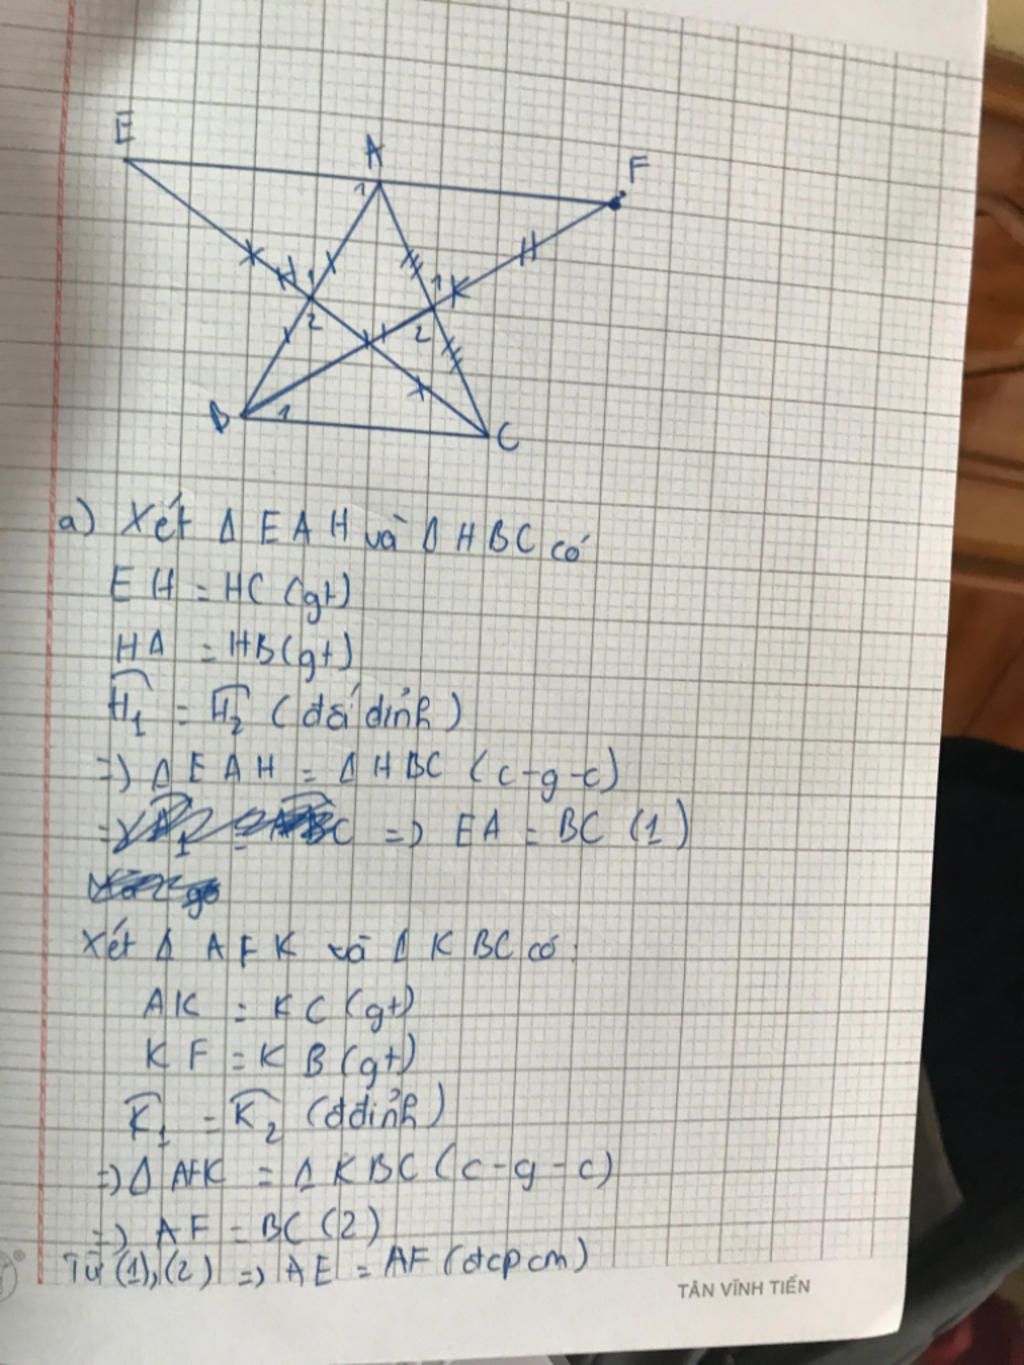 E
A
F
1
H 1
1 K
2
2
B 1
C
a) Xét Δ EAH và Δ HBC có
EH = HC (gt)
HA = HB (gt)
H₁ = H₂ (đối đỉnh)
=) Δ EAH = Δ HBC (c-g-c)
=) EA = BC (1)
Xét Δ AFK và Δ KBC có:
AK = KC (gt)
KF = KB (gt)
K₁ = K₂ (đđỉnh)
=) Δ AFK = Δ KBC (c-g-c)
=) AF = BC (2)
Từ (1), (2) =) AE = AF (đcpcm)
TÂN VĨNH TIẾN